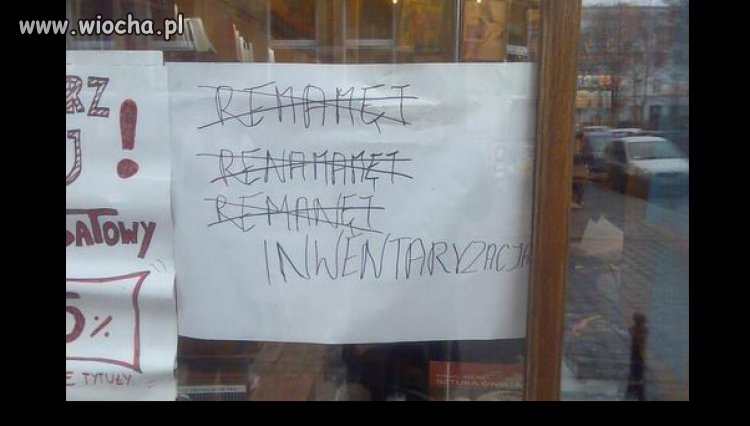 www.wiocha.pl
RZ
J!
BATOWY
5%
E TYTUŁY
REMAMĘT
RENAMAMĘT
REMANĘT
INWENTARYZACJA